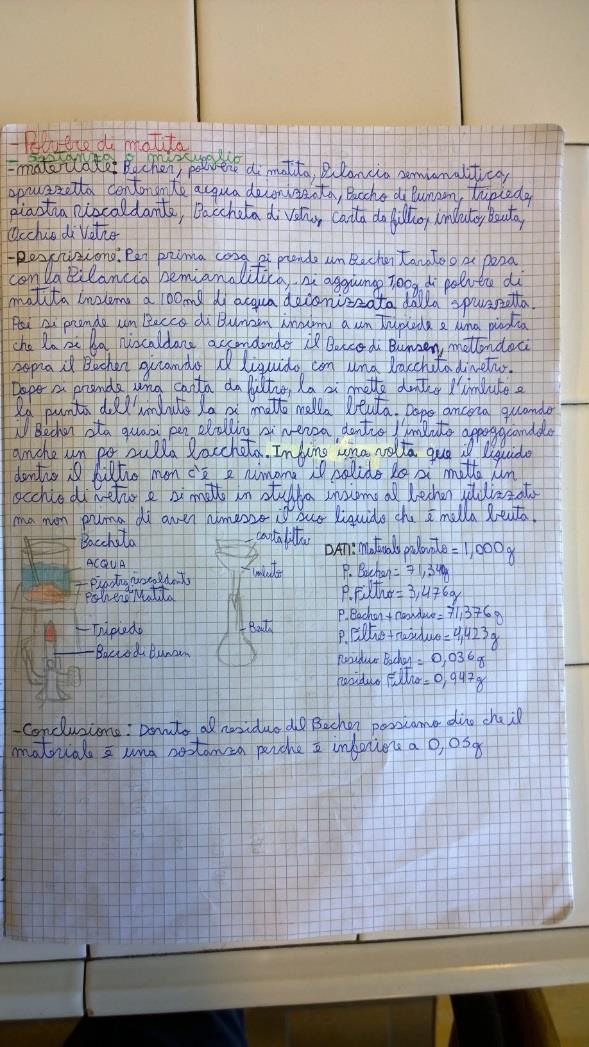 - Polvere di matita
- sostanza o miscuglio
- materiale: Becher, polvere di matita, Bilancia semianalitica,
spruzzetta contenente acqua deionizzata, Beccho di Bunsen, tripiede,
piastra riscaldante, Baccheta di Vetro, carta da filtro, imbuto, beuta,
Occhio di Vetro
- Descrizione: Per prima cosa si prende un Becher tarato e si pesa
con la Bilancia semianalitica, si aggiung 1,00g di polvere di
matita insieme a 100ml di acqua deionizzata dalla spruzzetta.
Poi si prende un Becco di Bunsen insieme a un Tripiede e una piastra
che la si fa riscaldare accendendo il Becco di Bunsen, mettendoci
sopra il Becher girando il liquido con una baccheta di vetro.
Dopo si prende una carta da filtro, la si mette dentro l'imbuto e
la punta dell'imbuto la si mette nella beuta. Dopo ancora quando
il Becher sta quasi per ebollire si versa dentro l'imbuto appoggiandolo
anche un po sulla baccheta. Infine una volta que il liquido
dentro il filtro non c'è e rimane il solido lo si mette in
occhio di vetro e si mette in stuffa insieme al becher utilizzato
ma non prima di aver rimesso il suo liquido che è nella beuta.
Baccheta
ACQUA
Piastra riscaldante
Polvere Matita
Tripiede
Becco di Bunsen
carta filtro
imbuto
Beuta
DATI: Materiale prelevato = 1,000g
P. Becher = 71,340g
P. Filtro = 3,476g
P. Becher + residuo = 71,376g
P. Filtro + residuo = 4,423g
residuo Becher = 0,036g
residuo Filtro = 0,947g
- Conclusione: Dovuto al residuo del Becher possiamo dire che il
materiale è una sostanza perche è inferiore a 0,05g